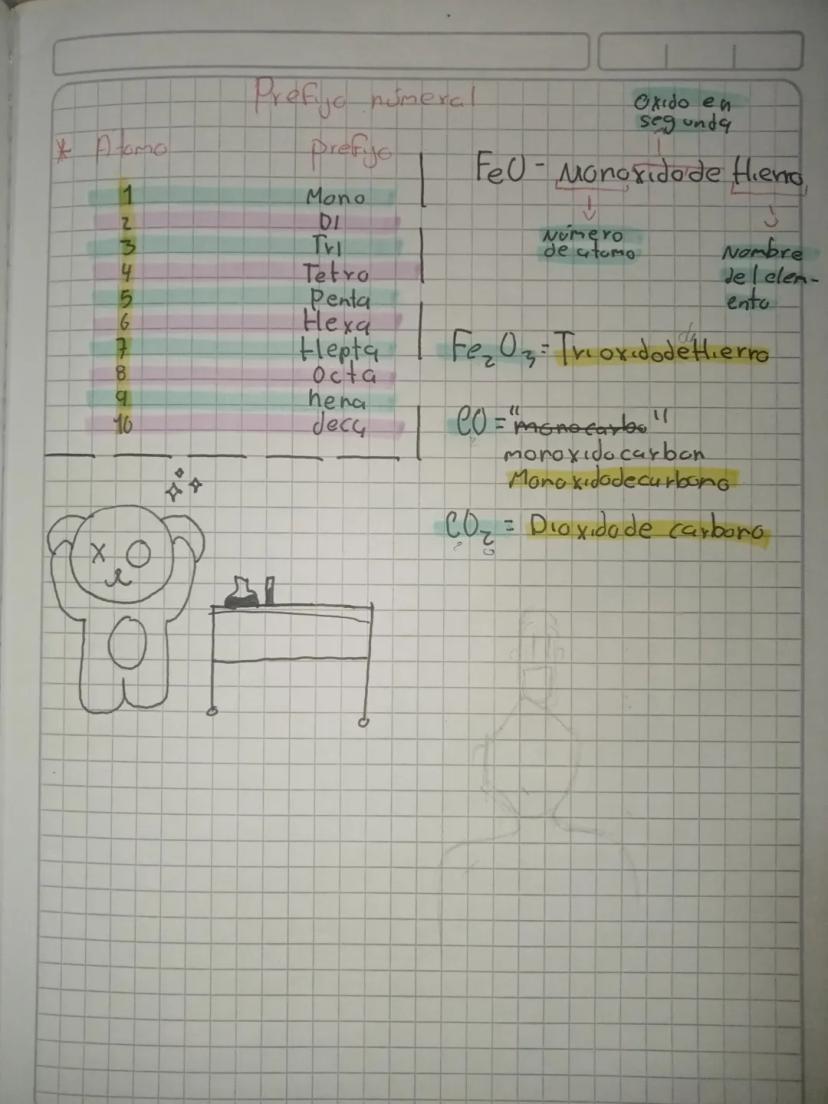 Prefijo númeral
* Atomo prefijo
1 Mono
2 Di
3 Tri
4 Tetro
5 Penta
6 Hexa
7 Hepta
8 octa
9 nena
10 deca
Oxido en
segunda
FeO - Monoxido de Hierro
Número
de atomo
Nombre
del elem-
ento
Fe₂O₃ = Trioxido de Hierro
CO = "monocarbo"
monoxidocarbon
Monoxido de carbono
CO₂ = Dioxido de carbono